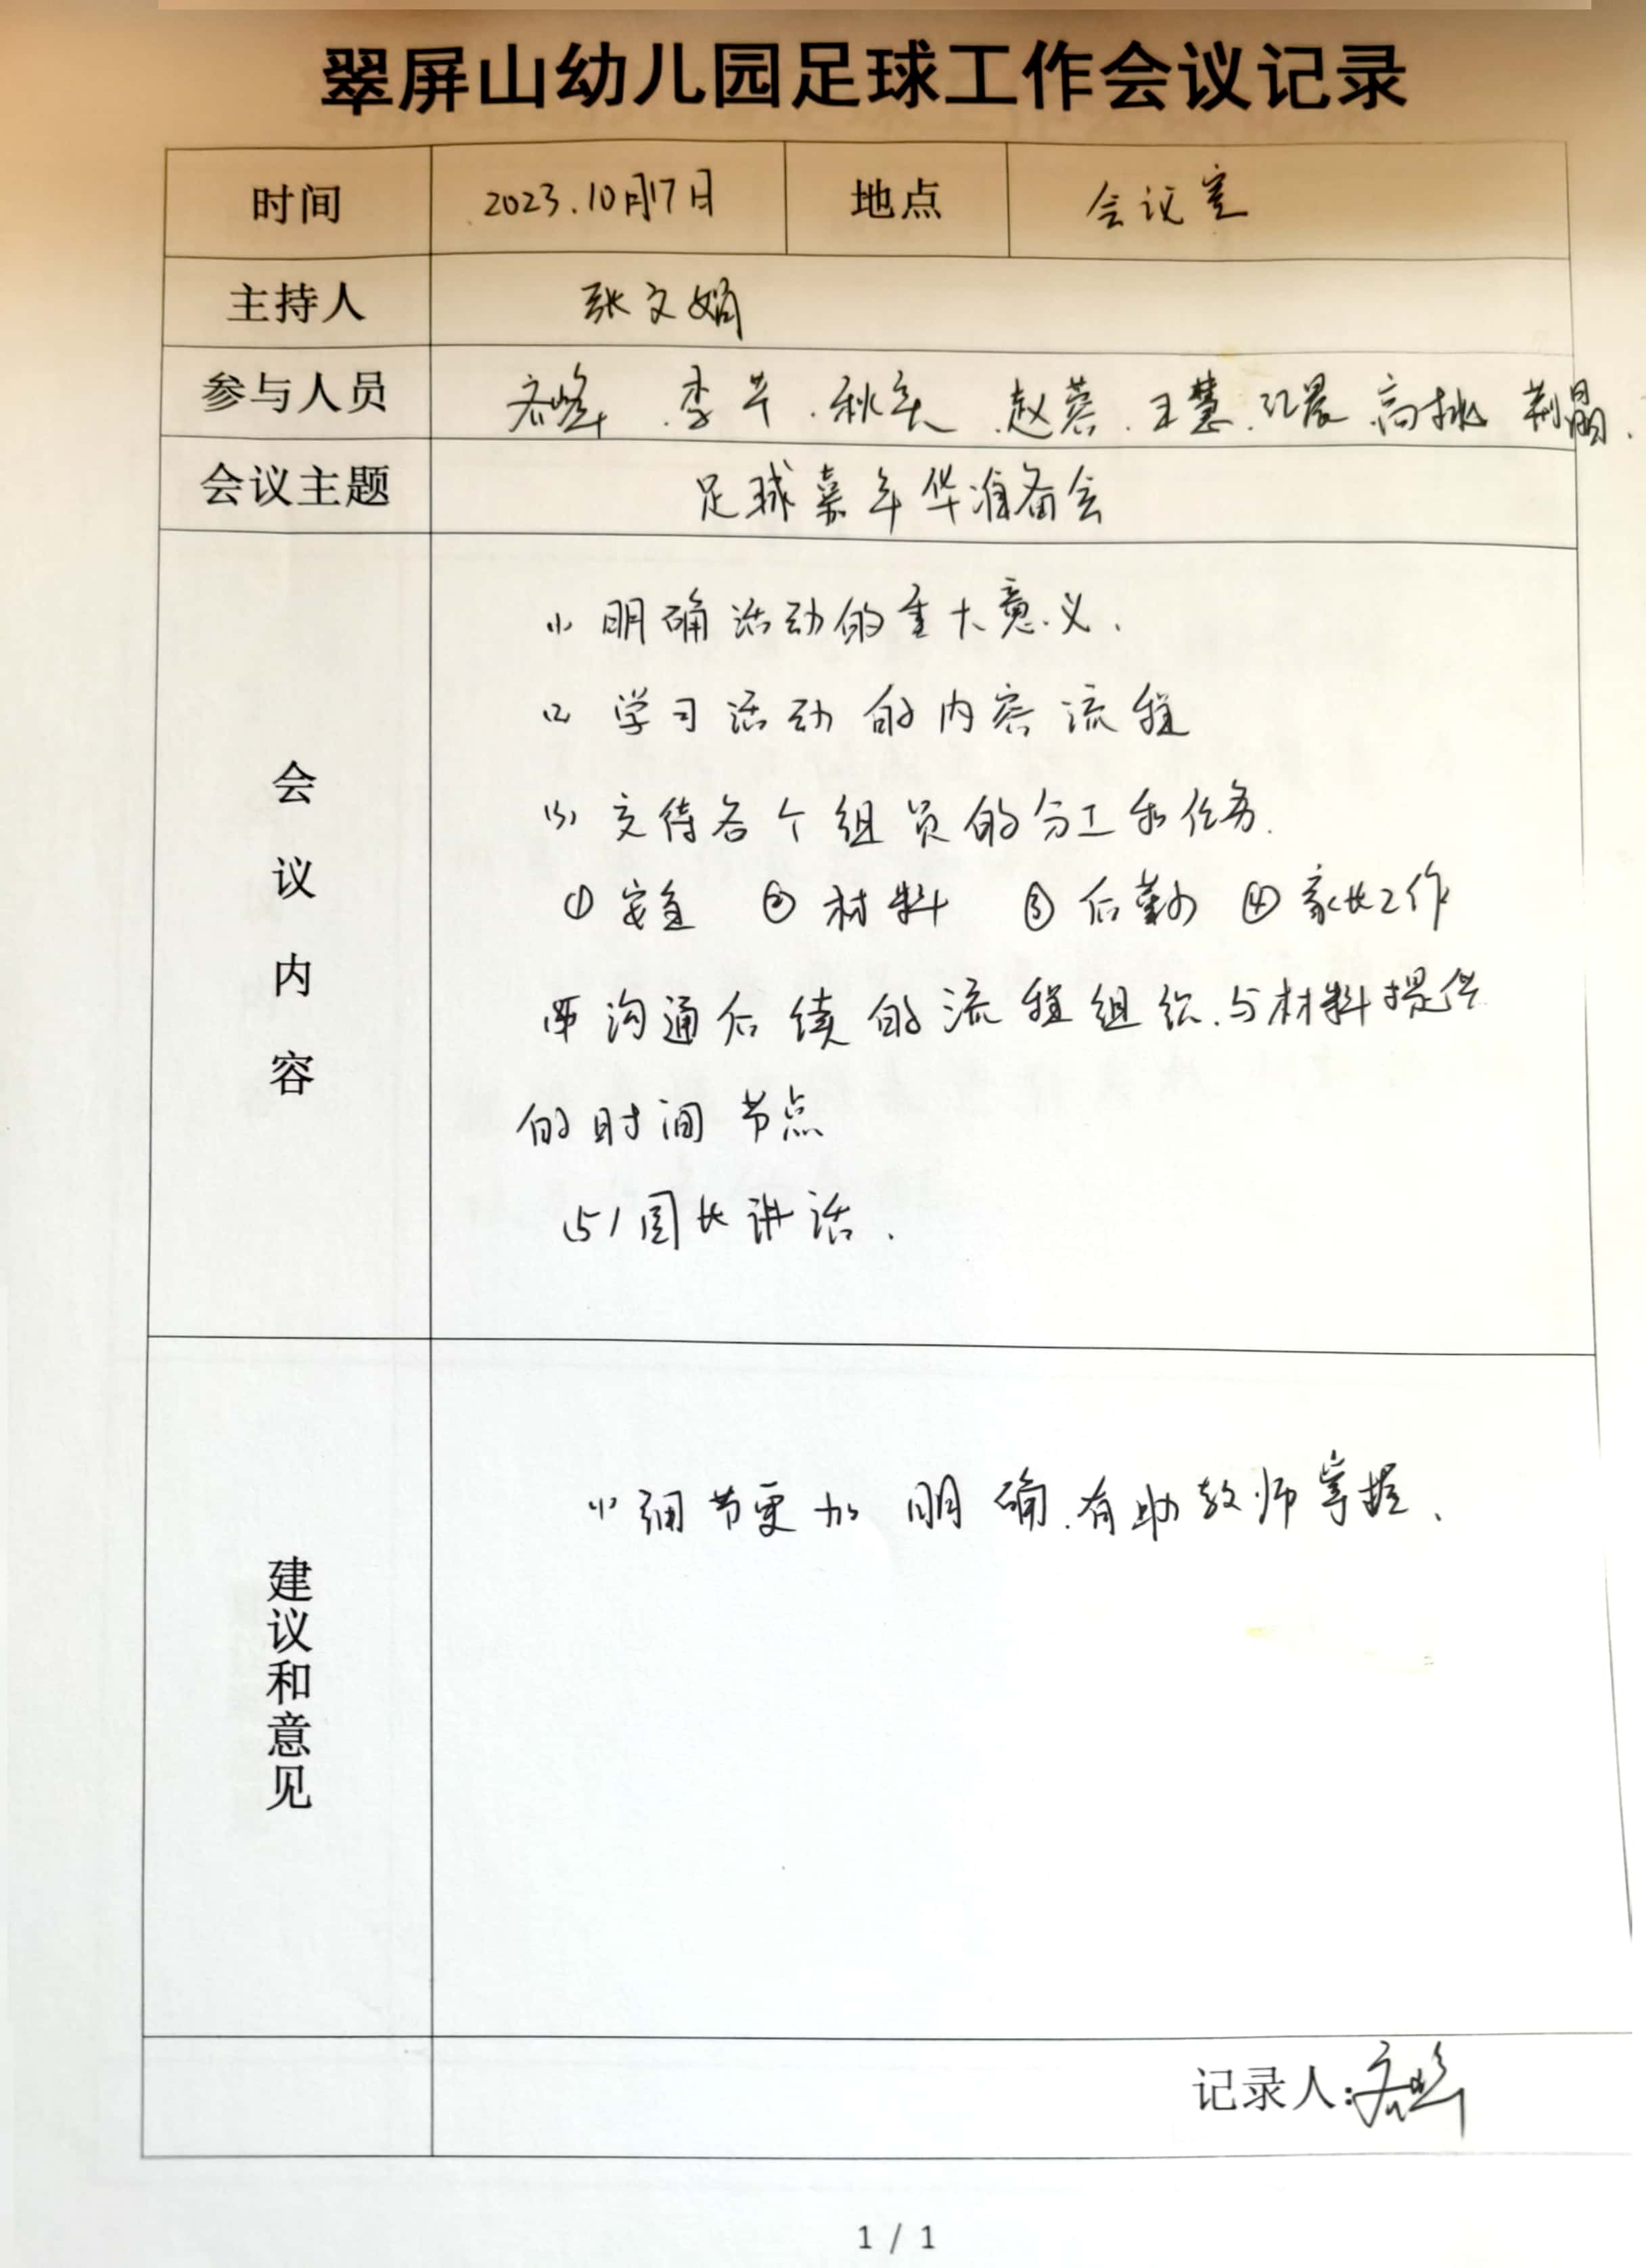 翠屏山幼儿园足球工作会议记录
时间 2023.10月17日 地点 会议室
主持人 张文娟
参与人员 李芊.秋矣.赵蓉.王慧.江晨.高姚 荆晶.
会议主题 足球嘉年华准备会
会议内容
(1) 明确活动的重大意义.
(2) 学习活动的内容流程
(3) 交待各个组员的分工和任务.
① 安全 ② 材料 ③ 后勤 ④ 家长工作
(4) 沟通后续的流程组织.与材料提供
的时间节点
(5) 园长讲话.
建议和意见
(1) 细节更加明确.有助教师掌握.
记录人:
1 / 1